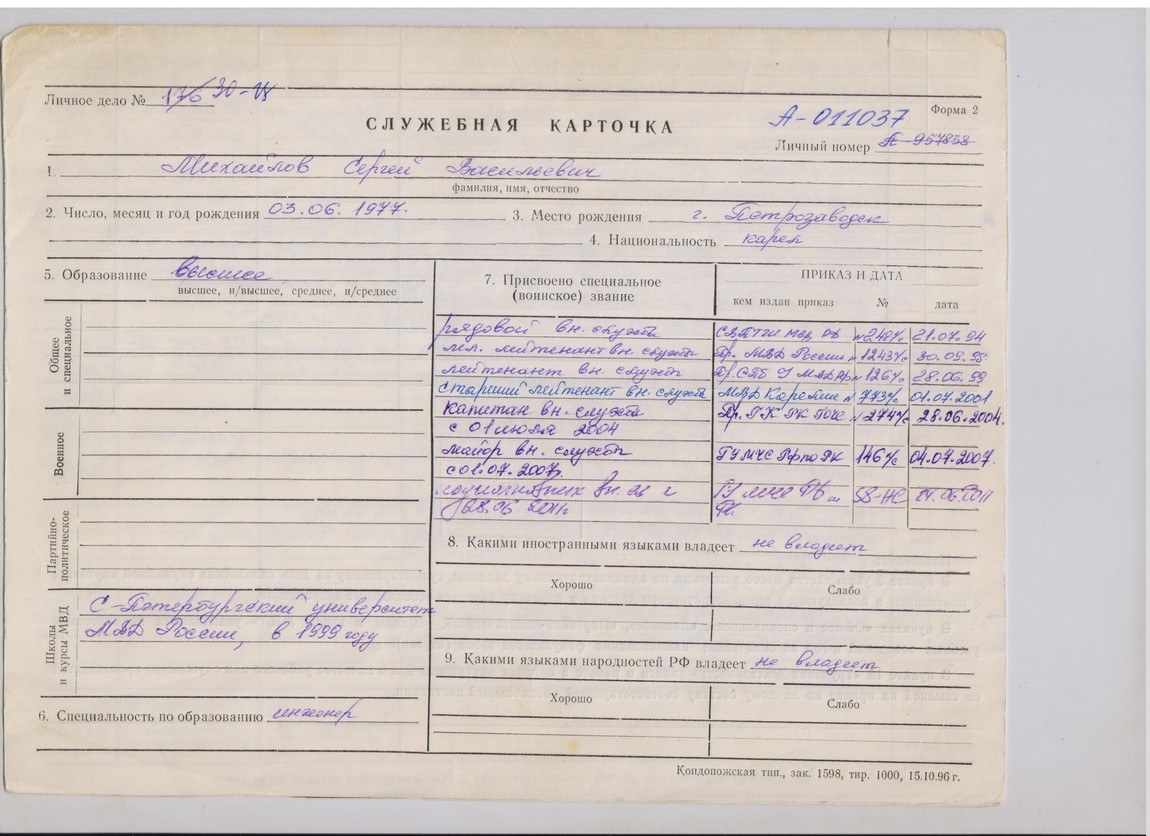 Личное дело № 176 30-
Форма 2
СЛУЖЕБНАЯ КАРТОЧКА
А-011037
Личный номер А-957838
1. Михайлов Сергей Васильевич
фамилия, имя, отчество
2. Число, месяц и год рождения 03.06.1977. 3. Место рождения г. Петрозаводск
4. Национальность карел
5. Образование высшее
высшее, н/высшее, среднее, н/среднее
Общее и специальное
Военное
Партийно-политическое
Школы и курсы МВД
С-Петербургский университет
МВД России, в 1999 году
6. Специальность по образованию инженер
7. Присвоено специальное (воинское) звание
ПРИКАЗ И ДАТА
кем издан приказ № дата
рядовой вн. службы № 248 л/с 21.07.94
мл. лейтенант вн. службы Пр. МВД России № 1243 л/с 30.09.98
лейтенант вн. службы Пр. СПб У МВД РФ № 126 л/с 28.06.99
старший лейтенант вн. службы МВД Карелии № 773 л/с 01.07.2001
капитан вн. службы № 274 л/с 28.06.2004.
с 01 июля 2004
майор вн. службы ГУ МЧС РФ по РК 146 л/с 04.07.2007.
с 01.07.2007г.
вн. сл. с ГУ МЧС РФ по 58-НС 24.06.2011
28.06.2011г РК
8. Какими иностранными языками владеет не владеет
Хорошо Слабо
9. Какими языками народностей РФ владеет не владеет
Хорошо Слабо
Кондопожская тип., зак. 1598, тир. 1000, 15.10.96 г.